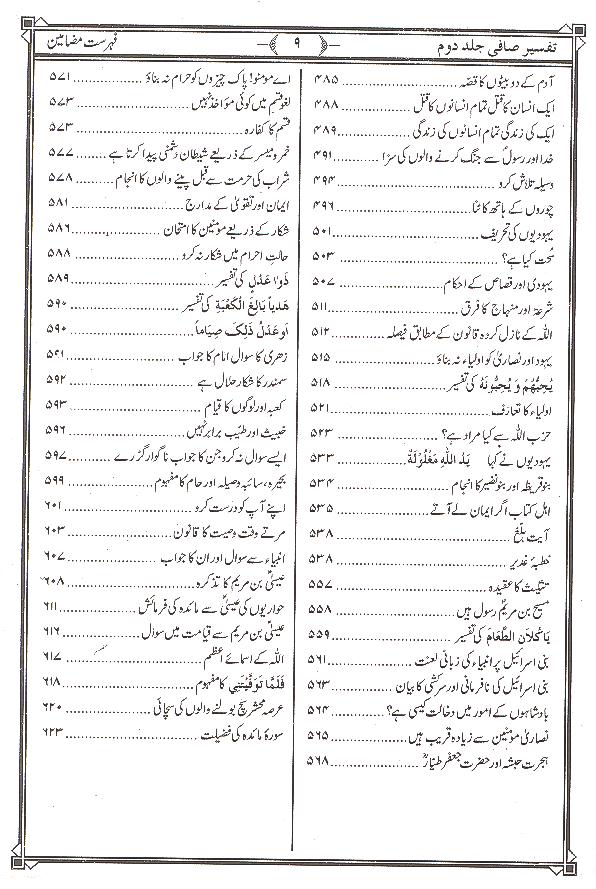 تفسیر صافی جلد دوم
۹
فہرست مضامین
آدم کے دو بیٹوں کا قصّہ ۴۸۵
ایک انسان کا قتل تمام انسانوں کا قتل ۴۸۸
ایک کی زندگی تمام انسانوں کی زندگی ۴۸۹
خدا اور رسولؐ سے جنگ کرنے والوں کی سزا ۴۹۱
وسیلہ تلاش کرو ۴۹۴
چوروں کے ہاتھ کاٹنا ۴۹۶
یہودیوں کی تحریف ۵۰۱
سُحت کیا ہے؟ ۵۰۳
یہودی اور قصاص کے احکام ۵۰۷
شرعۃ اور منہاج کا فرق ۵۱۱
اللہ کے نازل کردہ قانون کے مطابق فیصلہ ۵۱۲
یہود اور نصاریٰ کو اولیاء نہ بناؤ ۵۱۵
یُحِبُّهُمْ وَ یُحِبُّونَهٗ کی تفسیر ۵۱۸
اولیاء کا تعارف ۵۲۱
حزب اللہ سے کیا مراد ہے؟ ۵۲۳
یہودیوں نے کہا یَدُ اللهِ مَغْلُوْلَةٌ ۵۳۳
بنو قریظہ اور بنو نضیر کا انجام ۵۳۴
اہل کتاب اگر ایمان لے آتے ۵۳۵
آیت بلّغ ۵۳۸
خطبۂ غدیر ۵۳۸
تثلیث کا عقیدہ ۵۵۷
مسیح بن مریمؑ رسول ہیں ۵۵۸
یَاْکُلَانِ الطَّعَامَ کی تفسیر ۵۵۹
بنی اسرائیل پر انبیاء کی زبانی لعنت ۵۶۱
بنی اسرائیل کی نافرمانی اور سرکشی کا بیان ۵۶۳
بادشاہوں کے امور میں دخالت کیسی ہے؟ ۵۶۴
نصاریٰ مومنین سے زیادہ قریب ہیں ۵۶۵
ہجرت حبشہ اور حضرت جعفر طیارؓ ۵۶۸
اے مومنو! پاک چیزوں کو حرام نہ بناؤ ۵۷۱
لغو قسم میں کوئی مؤاخذ نہیں ۵۷۳
قسم کا کفارہ ۵۷۳
خمر و میسر کے ذریعے شیطان دشمنی پیدا کرتا ہے ۵۷۷
شراب کی حرمت سے قبل پینے والوں کا انجام ۵۷۸
ایمان اور تقویٰ کے مدارج ۵۸۱
شکار کے ذریعے مومنین کا امتحان ۵۸۶
حالتِ احرام میں شکار نہ کرو ۵۸۸
ذَوَا عَدْلٍ کی تفسیر ۵۸۹
هَدْیاً بَالِغَ الْکَعْبَةِ کی تفسیر ۵۹۰
اَو عَدْلُ ذٰلِکَ صِیَاماً ۵۹۰
زھری کا سوال امام کا جواب ۵۹۱
سمندر کا شکار حلال ہے ۵۹۲
کعبہ اور لوگوں کا قیام ۵۹۳
خبیث اور طیّب برابر نہیں ۵۹۶
ایسے سوال نہ کرو جن کا جواب ناگوار گزرے ۵۹۷
بحیرہ، سائبہ وصیلہ اور حام کا مفہوم ۵۹۹
اپنے آپ کو درست کرو ۶۰۱
مرتے وقت وصیت کا قانون ۶۰۳
انبیاء سے سوال اور ان کا جواب ۶۰۷
عیسیٰؑ بن مریم کا تذکرہ ۶۰۸
حواریوں کی عیسیٰؑ سے مائدہ کی فرمائش ۶۱۱
عیسیٰؑ بن مریم سے قیامت میں سوال ۶۱۶
اللہ کے اسمائے اعظم ۶۱۷
فَلَمَّا تَوَفَّیْتَنِی کا مفہوم ۶۱۸
عرصہ محشر سچ بولنے والوں کی سچائی ۶۲۰
سورۂ مائدہ کی فضیلت ۶۲۳